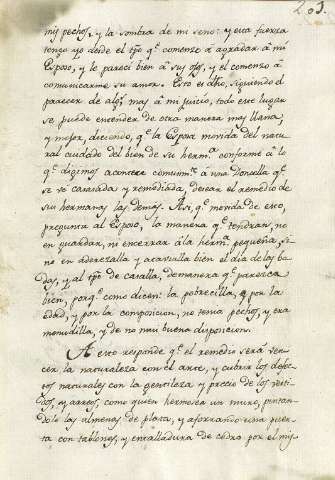 203.
mis pechos, y la sombra de mi seno: y esta fuerza
tengo yo desde el tpõ q.e comenzo à agradar à mi
Esposo, y le pareci bien à sus ojos, y el comenzo à
comunicarme su amor. Esto es dho, siguiendo el
parecer de alg.s mas à mi juicio, todo este lugar
se puede entender de otra manera muy llana,
y mejor, diciendo, q.e la Esposa movida del natu-
ral cuidado del bien de su herm.a conforme à lo
q.e digimos acontece comunm.te à una Doncella q.e
se ve casada y remediada, desean el remedio de
sus hermanas las demas. Asi, q.e movida de esto,
pregunta al Esposo, la manera q.e tendran, no
en guardar, ni encerrar à la herm.a pequeña, si-
no en aderezalla y ataviarla bien el dia de las bo-
das, y al tpõ de casalla, de manera q.e parezca
bien, porq.e como dicen: la pobrecilla, q.e por la
edad, y por la composicion, no tenia pechos, y era
menudilla, y de no muy buena disposicion.
A esto responde q.e el remedio serà ven-
cer la naturaleza con el arte, y cubrir los defec-
tos naturales con la gentileza y precio de los vesti-
dos, y arreos, como quien hermosea un muro, pintan-
dole las almenas de plata, y aforrando una puer-
ta con tablones, y entalladura de cedro por el mis-